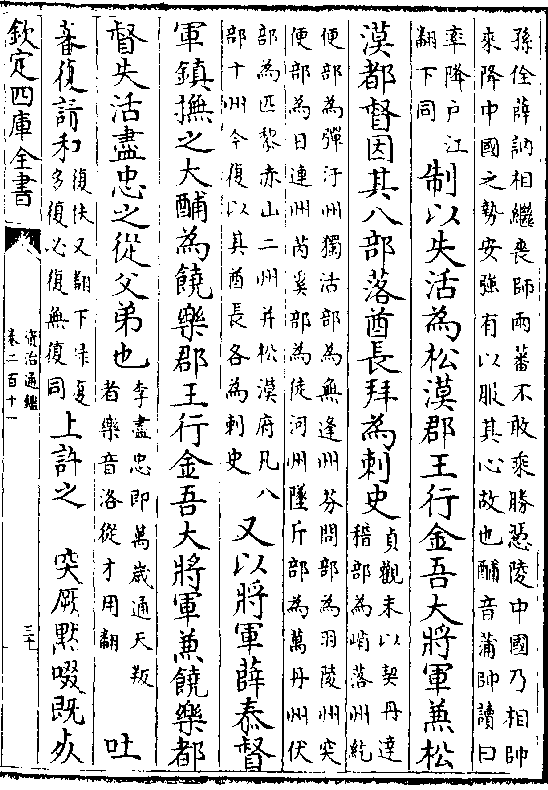 孫佺薛訥相繼喪師兩蕃不敢乘勝憑陵中國乃相帥
來降中國之勢安強有以服其心故也酺音蒲帥讀曰
率降户江
翻下同
制以失活為松漠郡王行金吾大將軍兼松
漠都督因其八部落酋長拜為刺史
貞觀末以契丹達
稽部為峭落州紇
便部為彈汗州獨活部為無逢州芬問部為羽陵州突
便部為日連州芮奚部為徒河州墜斤部為萬丹州伏
部為匹黎赤山二州并松漠府凡八
部十州今復以其酋長各為刺史
又以將軍薛泰督
軍鎮撫之大酺為饒樂郡王行金吾大將軍兼饒樂都
督失活盡忠之從父弟也
李盡忠即萬歲通天叛
者樂音洛從才用翻
吐
蕃復請和
復扶又翻下㝷復
多復必復無復同
上許之
突厥黙啜既𠂻
欽定四庫全書
資治通鑑
卷二百十一
三十